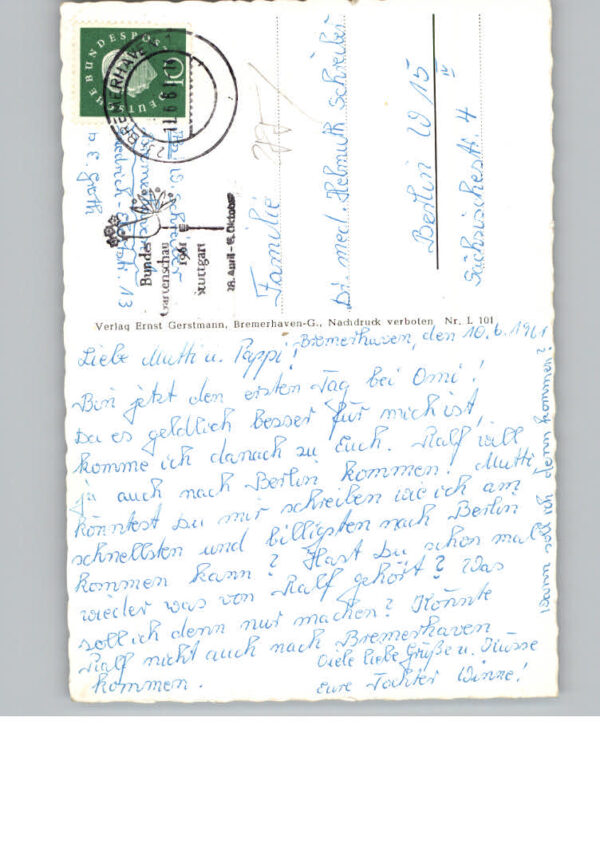 DEUTSCHE BUNDESPOST
10
BREMERHAVEN
11.6.61
Bundes
Gartenschau
1961
Stuttgart
28. April - 15. Oktober
W. Schreiber
Bremerhaven
13
b. E. Groth
Familie
Dr. med. Helmuth Schreiber
Berlin W 15
Sächsischestr. 4 IV
Verlag Ernst Gerstmann, Bremerhaven-G., Nachdruck verboten Nr. L 101
Bremerhaven, den 10.6.1961
Liebe Mutti u. Pappi!
Bin jetzt den ersten Tag bei Omi!
Da es geldlich besser für mich ist,
komme ich danach zu Euch. Ralf will
ja auch nach Berlin kommen! Mutti
könntest Du mir schreiben wie ich am
schnellsten und billigsten nach Berlin
kommen kann? Hast Du schon mal
wieder was von Ralf gehört? Was
soll ich denn nur machen? Könnte
Ralf nicht auch nach Bremerhaven
kommen.
Viele liebe Grüße u. Küsse
Eure Tochter Winne!
Wann soll ich denn kommen?